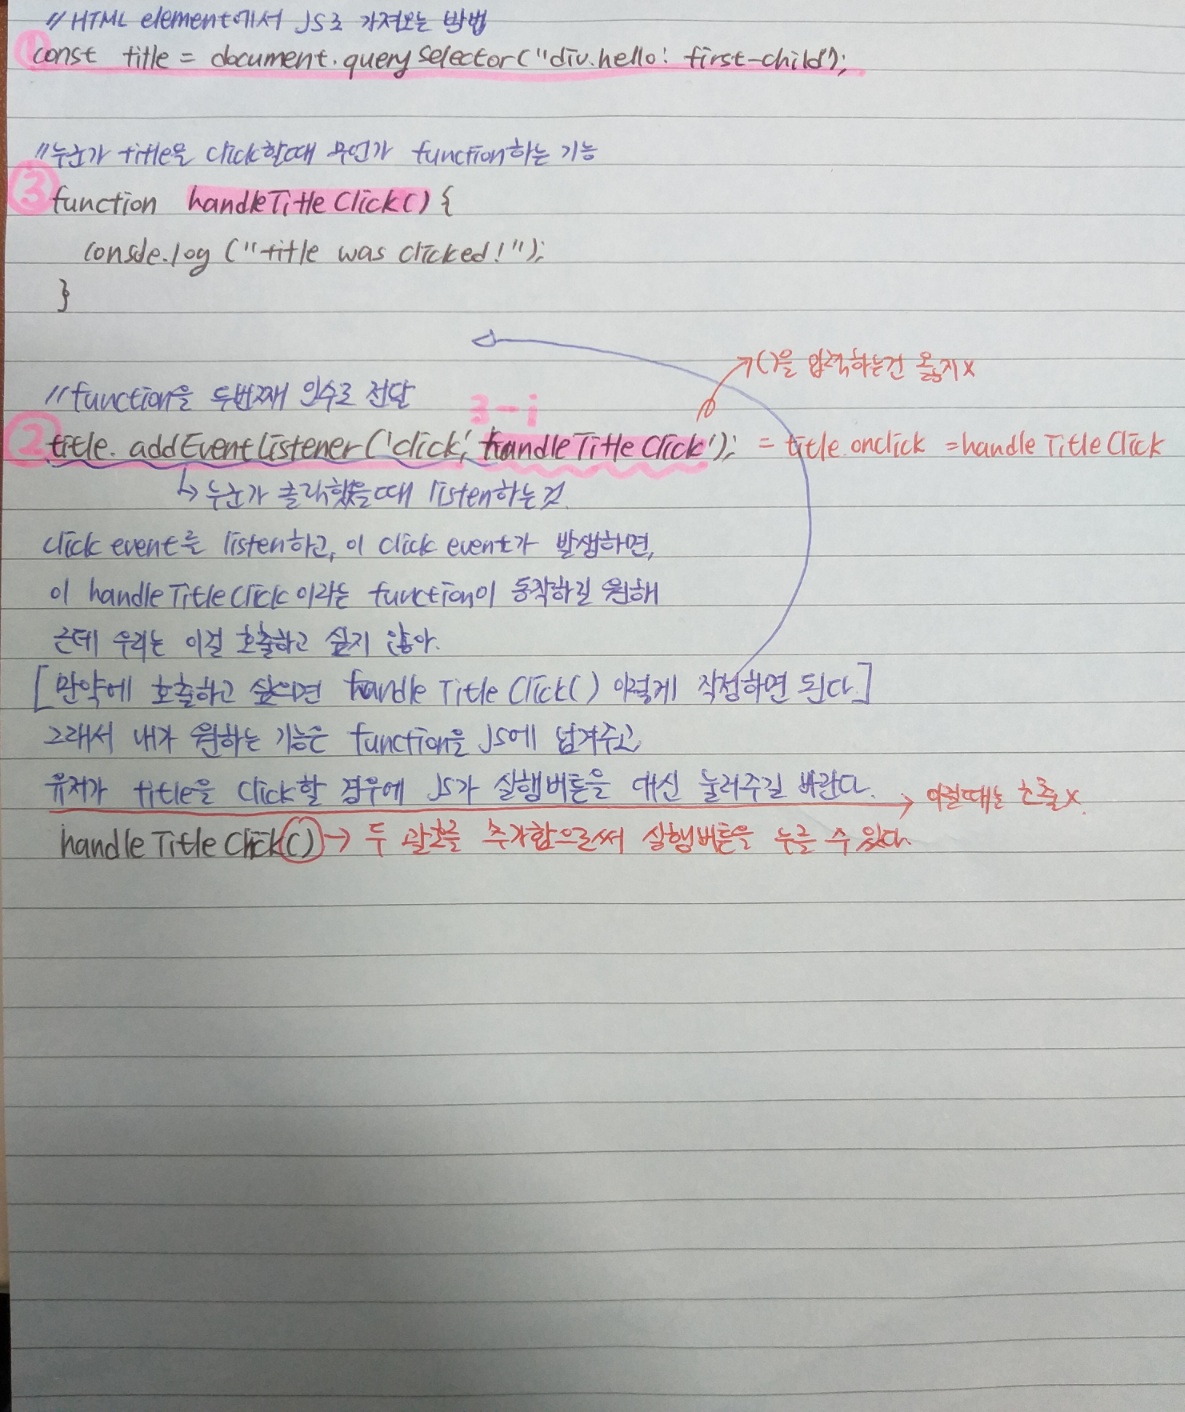 // HTML element에서 JS로 가져오는 방법
① const title = document.querySelector("div.hello: first-child");
//누군가 title을 click할때 무언가 function하는 기능
③ function handleTitleClick() {
console.log ("title was clicked!");
}
↗()을 입력하는건 옳지 x
//function을 두번째 인수로 전달
3-i
② title. addEventListener('click', handleTitleClick'); = title.onclick = handleTitleClick
↳ 누군가 클릭했을때 listen하는것.
click event를 listen하고, 이 click event가 발생하면,
이 handleTitleClick 이라는 function이 동작하길 원해
근데 우리는 이걸 호출하고 싶지 않아.
[만약에 호출하고 싶으면 handleTitleClick() 이렇게 작성하면 된다.]
그래서 내가 원하는 기능은 function을 JS에 넘겨주고,
유저가 title을 click할 경우에 JS가 실행버튼을 대신 눌러주길 바란다. → 이럴때는 호출x.
handleTitleClick() → 두 괄호를 추가함으로써 실행버튼을 누를 수 있다.